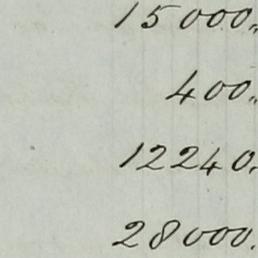 15000"
400"
12240.
28000.